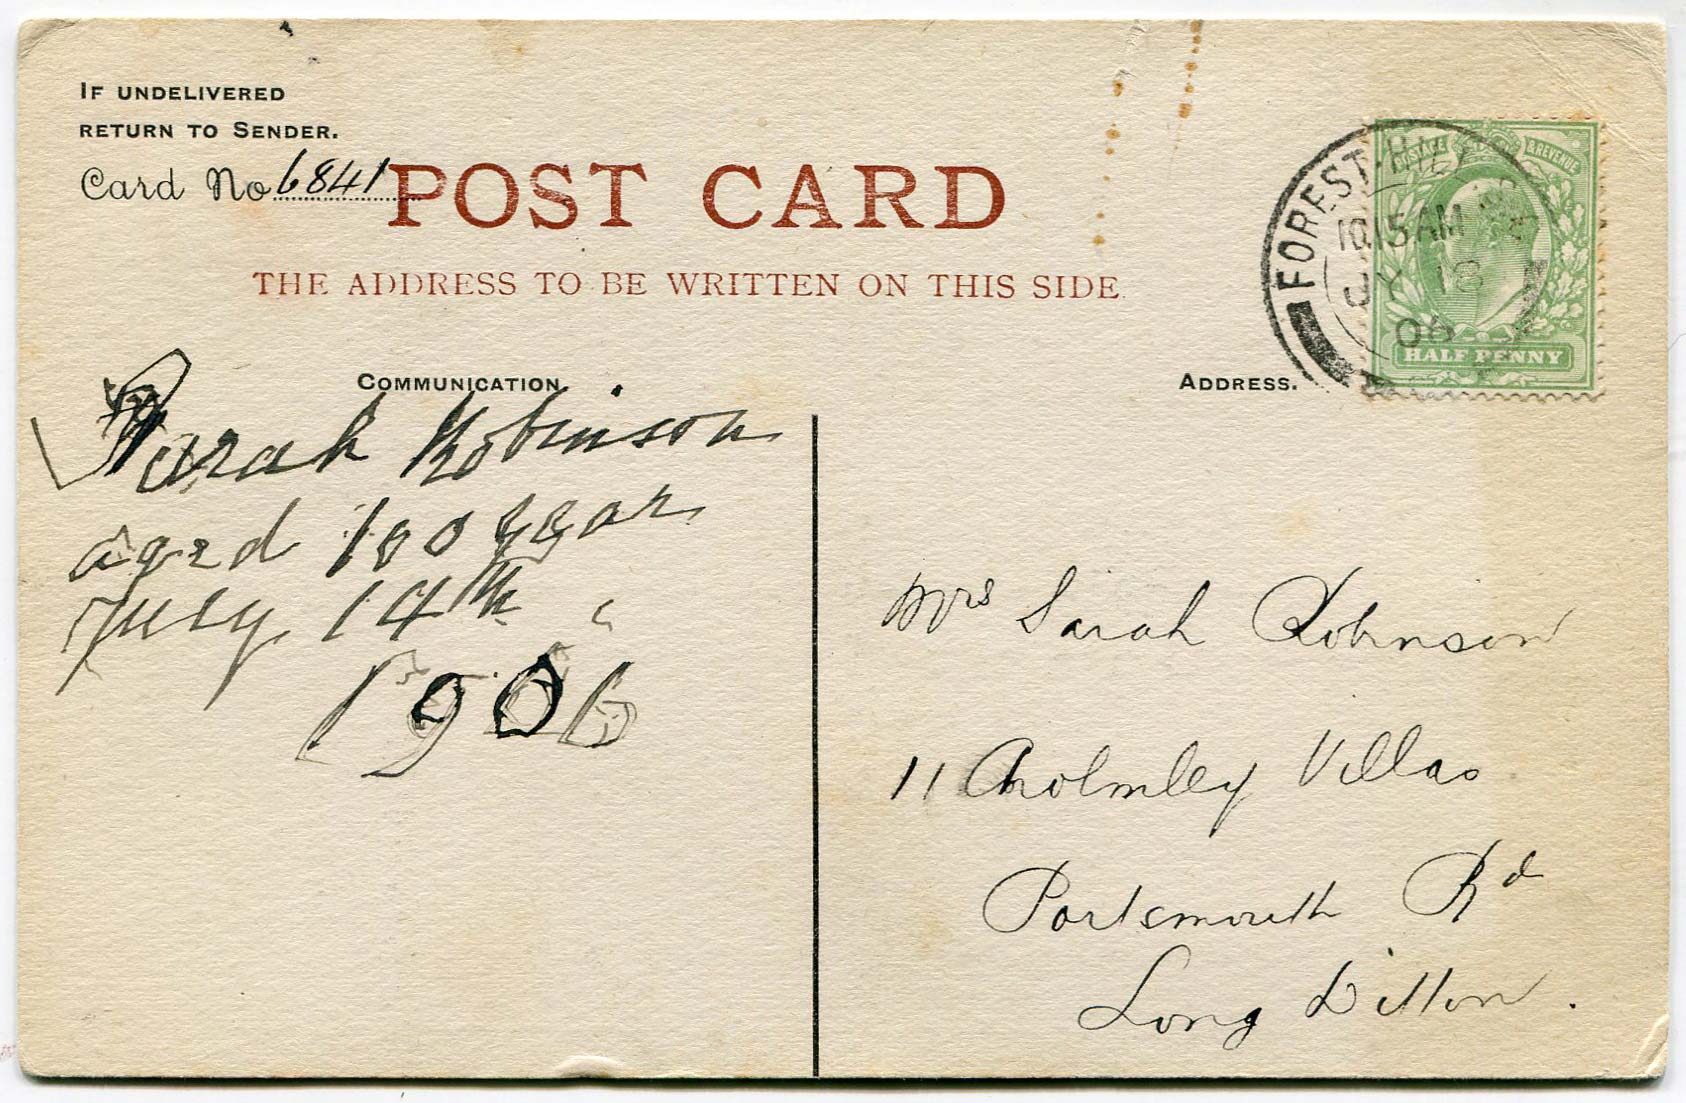 IF UNDELIVERED
RETURN TO SENDER.
Card No 6841
POST CARD
THE ADDRESS TO BE WRITTEN ON THIS SIDE
FOREST-HILL
10.15 AM
JY 18
06
POSTAGE & REVENUE
HALF PENNY
COMMUNICATION.
Sarah Robinson
aged 100 year
July 14th
1906
ADDRESS.
Mrs Sarah Robinson
11 Cholmley Villas
Portsmouth Rd
Long Ditton.